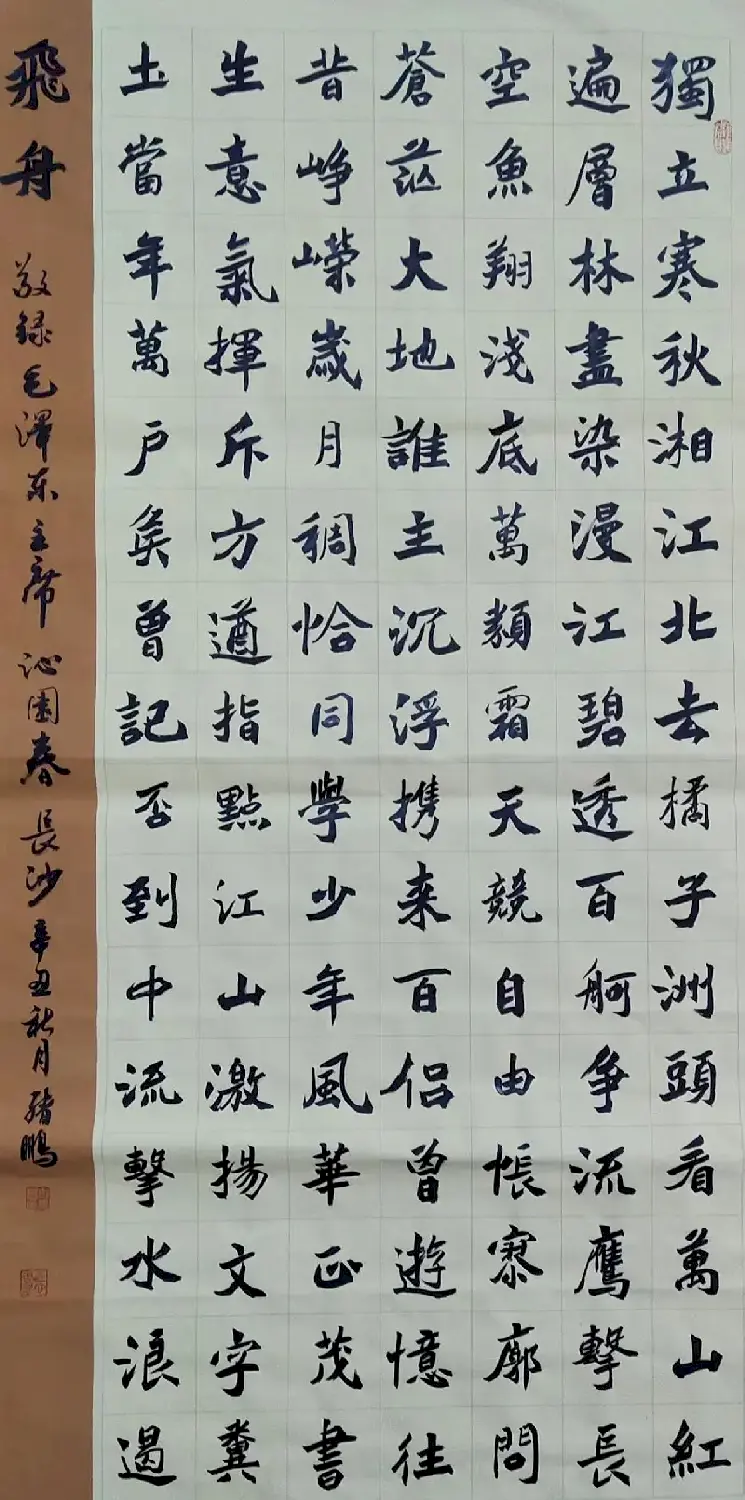 獨立寒秋湘江北去橘子洲頭看萬山紅
遍層林盡染漫江碧透百舸爭流鷹擊長
空魚翔淺底萬類霜天競自由悵寥廓問
蒼茫大地誰主沉浮携来百侣曾遊憶往
昔崢嶸歲月稠恰同學少年風華正茂書
生意氣揮斥方遒指點江山激揚文字糞
土當年萬户矦曾記否到中流擊水浪遏
飛舟 敬録毛澤东主席沁園春長沙辛丑秋月鵬